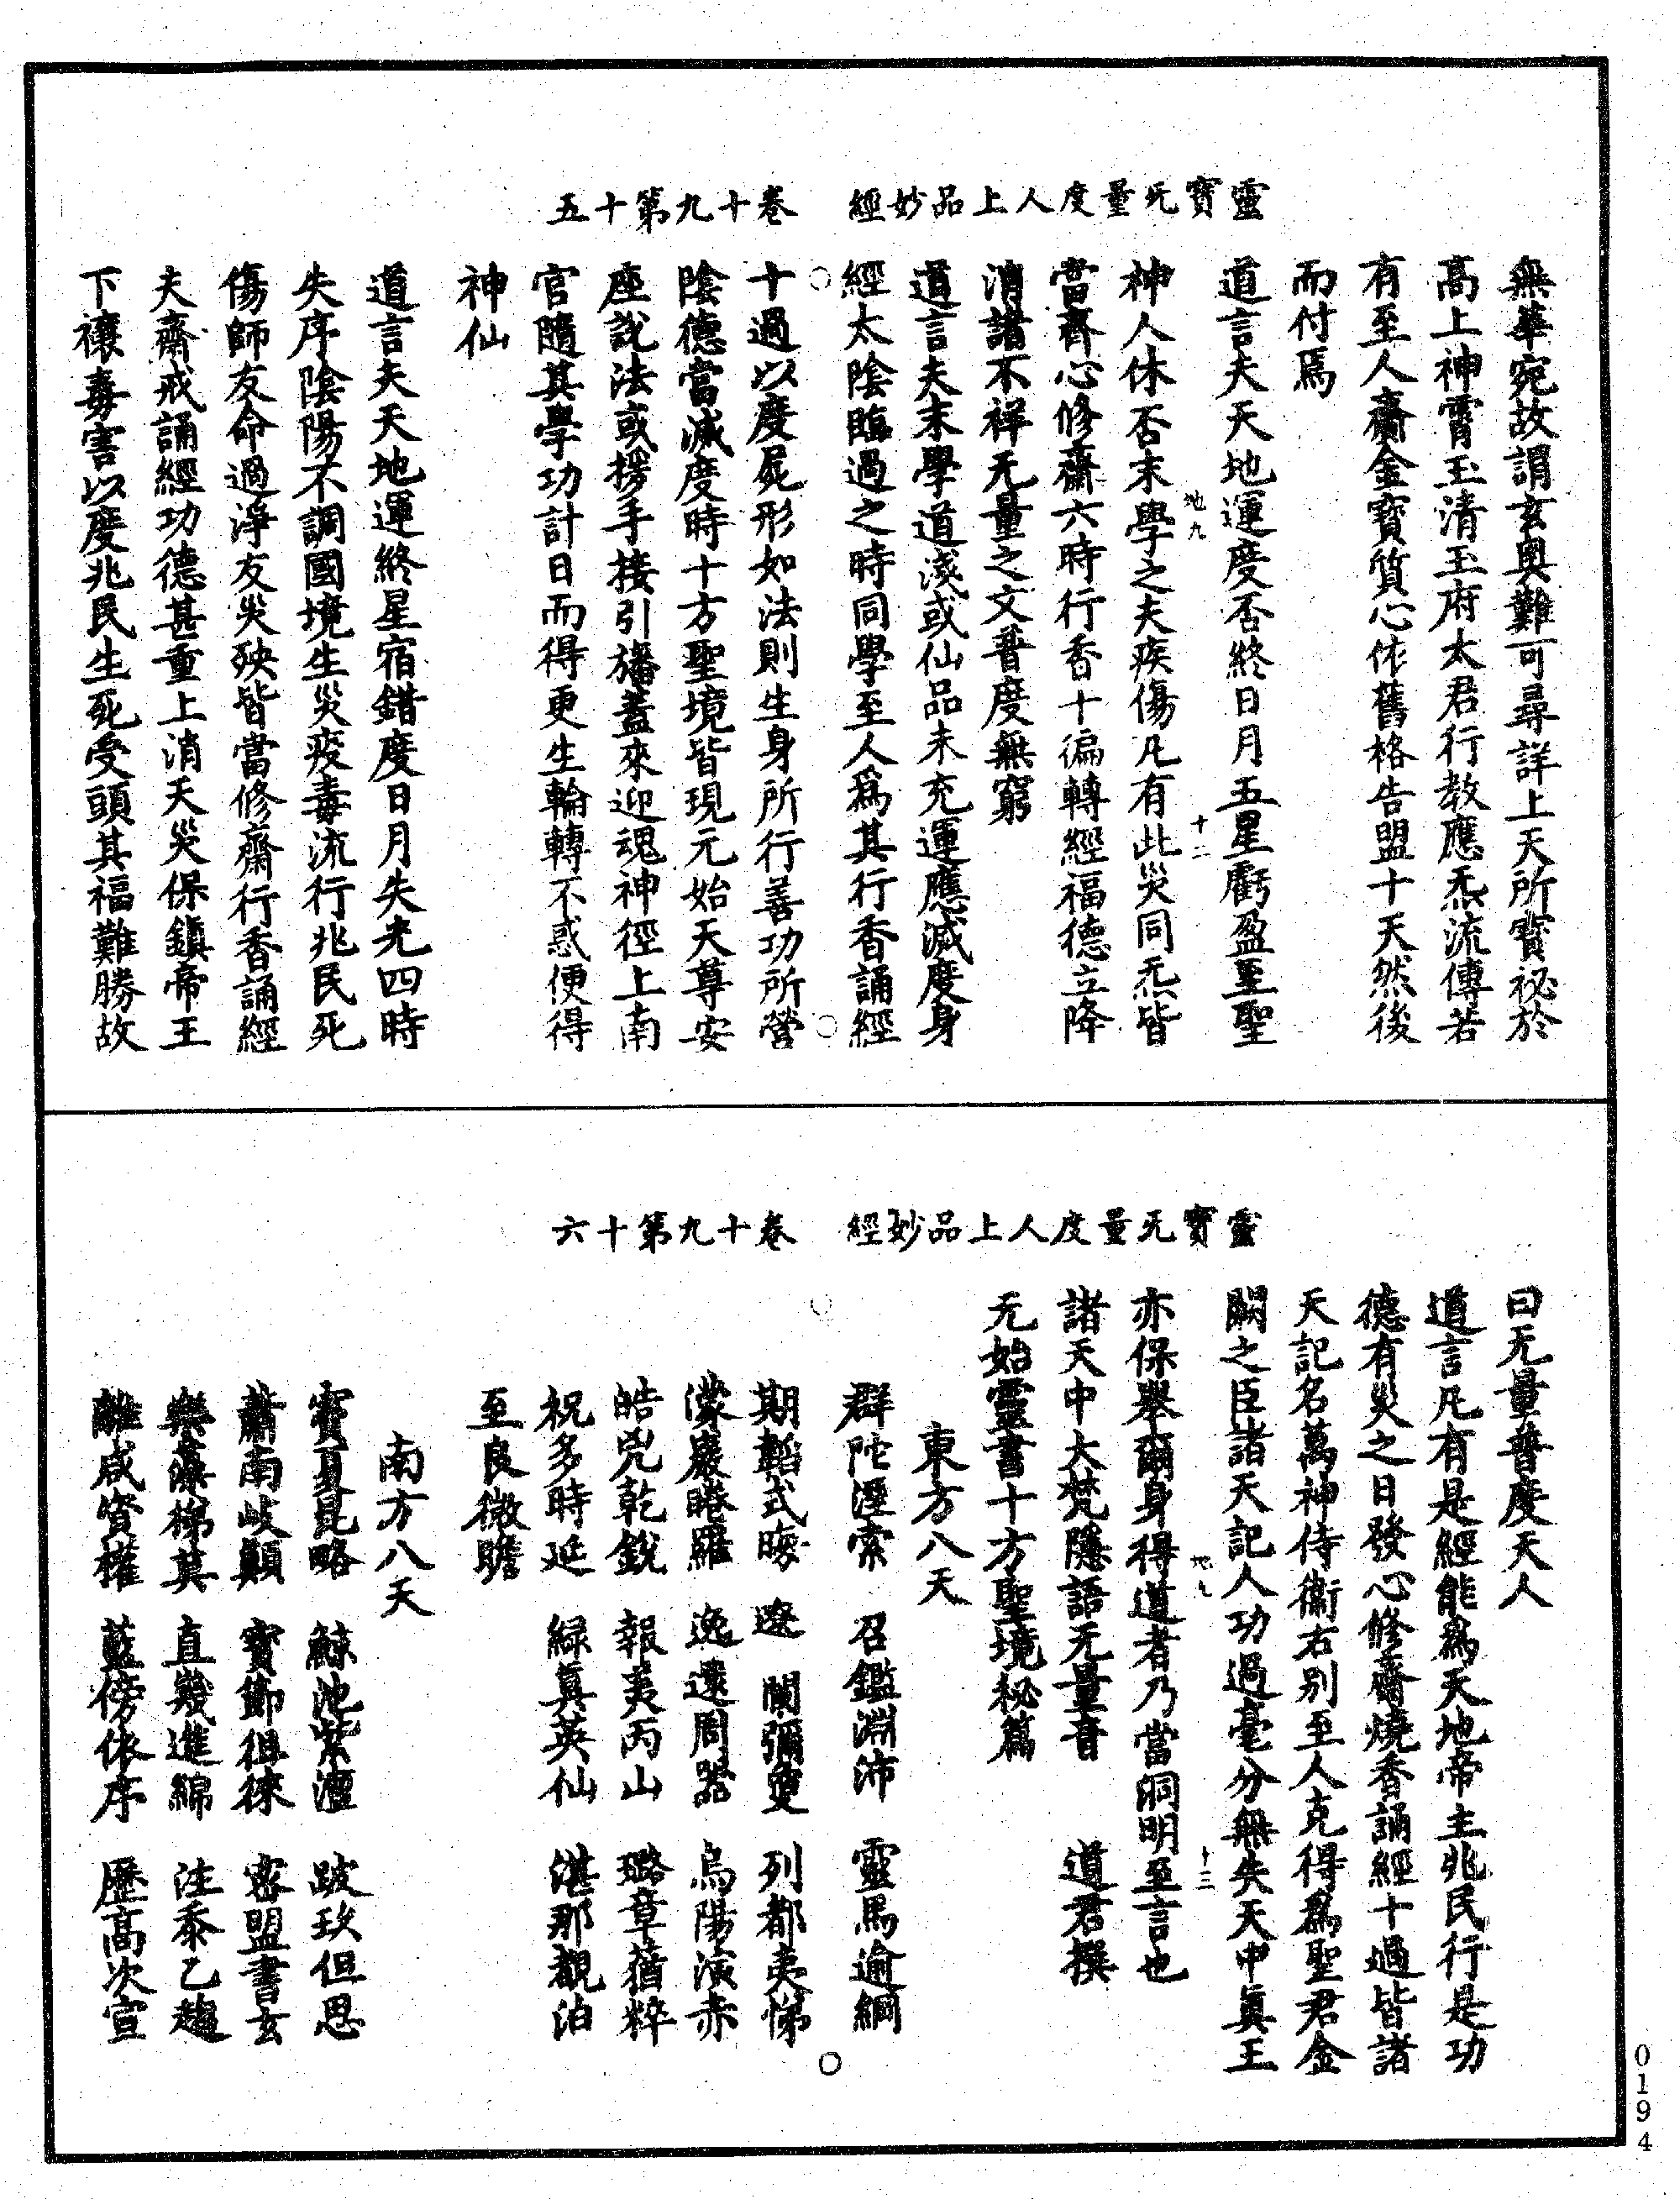 靈寶无量度人上品妙經　卷十九第十五
無華宛故謂玄奧難可尋詳上天所寶祕於
高上神霄玉清玉府太君行教應炁流傳若
有至人齎金寶質心依舊格告盟十天然後
而付焉
道言夫天地運度否終日月五星虧盈至聖
地九　十二
神人休否末學之夫疾傷凡有此災同炁皆
當齊心修齋六時行香十徧轉經福德立降
消諸不祥无量之文普度無窮
道言夫末學道淺或仙品未充運應滅度身
經太陰臨過之時同學至人爲其行香誦經
十過以度屍形如法則生身所行善功所營
陰德當滅度時十方聖境皆現元始天尊安
座說法或楞手接引旛蓋來迎魂神徑上南
官隨其學功計日而得更生輪轉不惑便得
神仙
道言夫天地運終星宿錯度日月失光四時
失序陰陽不調國境生災疫毒流行兆民死
傷師友命過淨友災殃皆當修齋行香誦經
夫齋戒誦經功德甚重上消天災保鎮帝王
下禳毒害以度兆民生死受頭其福難勝故
靈寶无量度人上品妙經　卷十九第十六
曰无量普度天人
道言凡有是經能爲天地帝主兆民行是功
德有災之日發心修齋燒香誦經十過皆諸
天記名萬神侍衞右别至人克得爲聖君金
闕之臣諸天記人功過毫分無失天中眞王
地九　十三
亦保舉爾身得道者乃當洞明至言也
諸天中大梵隱語无量音　道君撰
元始靈書十方聖境祕篇
東方八天
群陀溼索　召鑑淵沛　靈馬逾綱
期韜式曖　遼　闌彌敻　列都夷悌
濛巖睠羅　逸還周器　烏陽演赤
皓兕乾銳　報夷丙山　璐章蓿粹
祝多時延　緑眞英仙　湛那覩泊
至良微瞻
南方八天
寶夏昆略　鯨池紫澶　跛玫但思
蕭南岐顛　寳節徂徠　密盟書玄
樂藻梯莫　直幾進綿　注黍乙趨
離咸賓權　藍傍依序　歷高次宣
0194